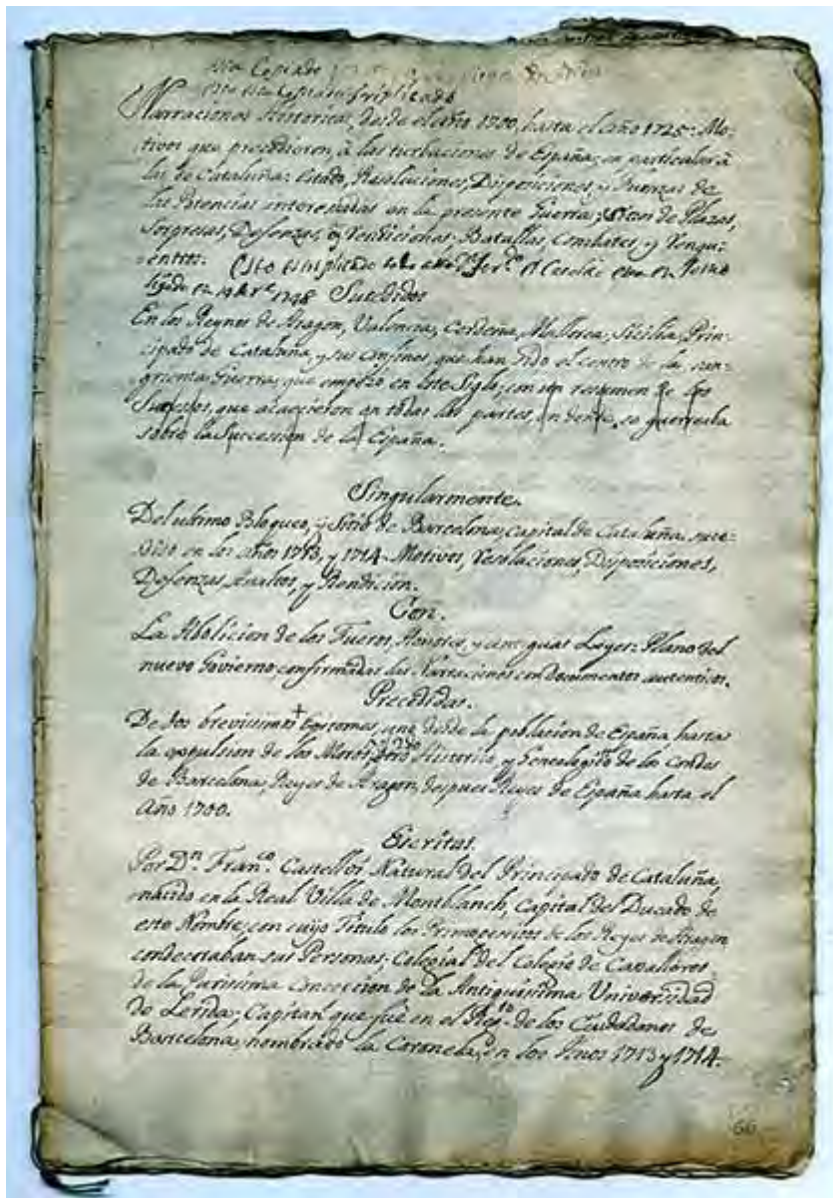 Esta Copiado
esta Copiado triplicado
Narraciones Historicas, desde el año 1700, hasta el año 1725: Mo:
tivos que precedieron, à las turbaciones de España, en particular à
las de Cataluña: Estado, Resoluciones, Disposiciones, y Fuerzas de
las Potencias interesadas en la presente Guerra; Sitios de Plazas,
Sorpresas, Defensas, y Rendiciones. Batallas, Combates, y
Sucedidos
En los Reynos de Aragon, Valencia, Cerdeña, Mallorca, Sicilia, Prin:
cipado de Cataluña, y sus confines, que han sido el centro de la san:
grienta Guerra, que empezó en este Siglo, con un resumen de los
Sucesos, que acaecieron en todas las partes, en donde, se guerreaba
sobre la Succession de la España.
Singularmente.
Del ultimo Bloqueo, y Sitio de Barcelona, capital de Cataluña suce:
dido en los años 1713, y 1714. Motivos, Resoluciones, Disposiciones,
Defenzas Asaltos, y Rendicion.
Con.
La Abolicion de los Fueros, Honores, y antiguas Leyes: Plano del
nuevo Govierno confirmadas las Narraciones con Documentos autenticos.
Precedidas.
De dos brevissimos Epitomes, uno desde la poblacion de España hasta
la expulsion de los Moros, otro Historico, y Genealogico de los Condes
de Barcelona, Reyes de Aragon, despues Reyes de España hasta el
Año 1700.
Escritas.
Por Dn. Franco. Castellvi Natural del Principado de Cataluña,
nacido en la Real Villa de Montblanch, Capital del Ducado de
este Nombre, con cuyo Titulo los Primogenitos de los Reyes de Aragon
condecoraban sus Personas; Colegial del Colegio de Cavalleros
de la Purissima Concepcion de la Antiquissima Universidad
de Lerida; Capitan que fue en el Regto. de los Ciudadanos de
Barcelona, nombrado la Coronela, en los Años 1713 y 1714.
66